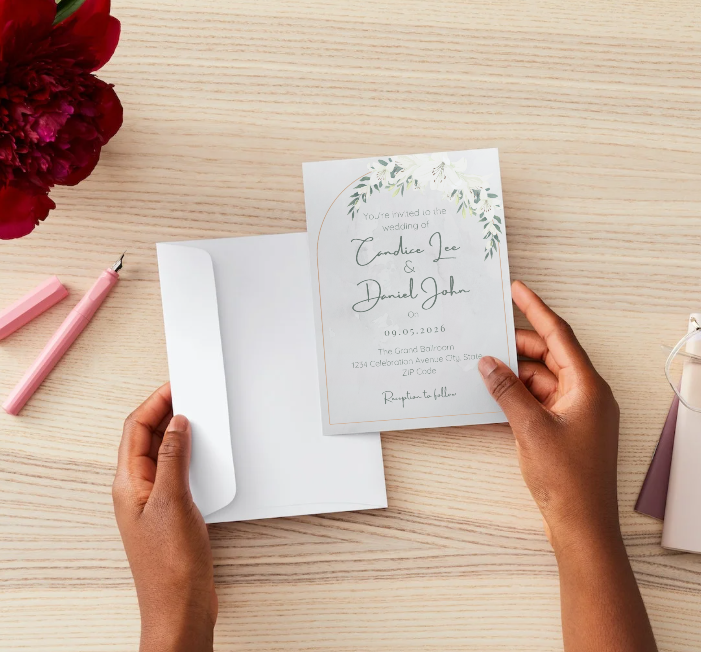 You're invited to the
wedding of
Candice Lee
&
Daniel John
On
09.05.2026
The Grand Ballroom
1234 Celebration Avenue City, State,
ZIP Code
Reception to follow